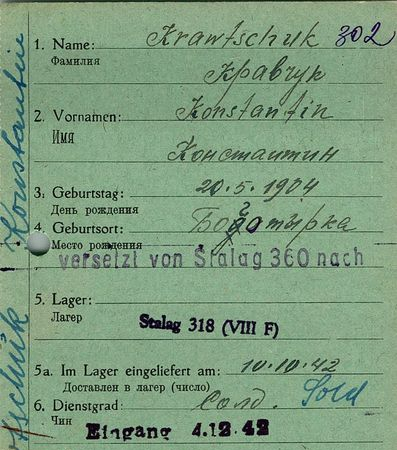 1. Name: Krawtschuk 302
Фамилия Кравчук
2. Vornamen: Konstantin
Имя Константин
3. Geburtstag: 20.5.1904
День рождения
4. Geburtsort: Боготырка
Место рождения
versetzt von Stalag 360 nach
5. Lager:
Лагерь
Stalag 318 (VIII F)
5a. Im Lager eingeliefert am: 10.10.42
Доставлен в лагерь (число)
6. Dienstgrad: Солд. Sold
Чин
Eingang 4.12.42
Konstantin